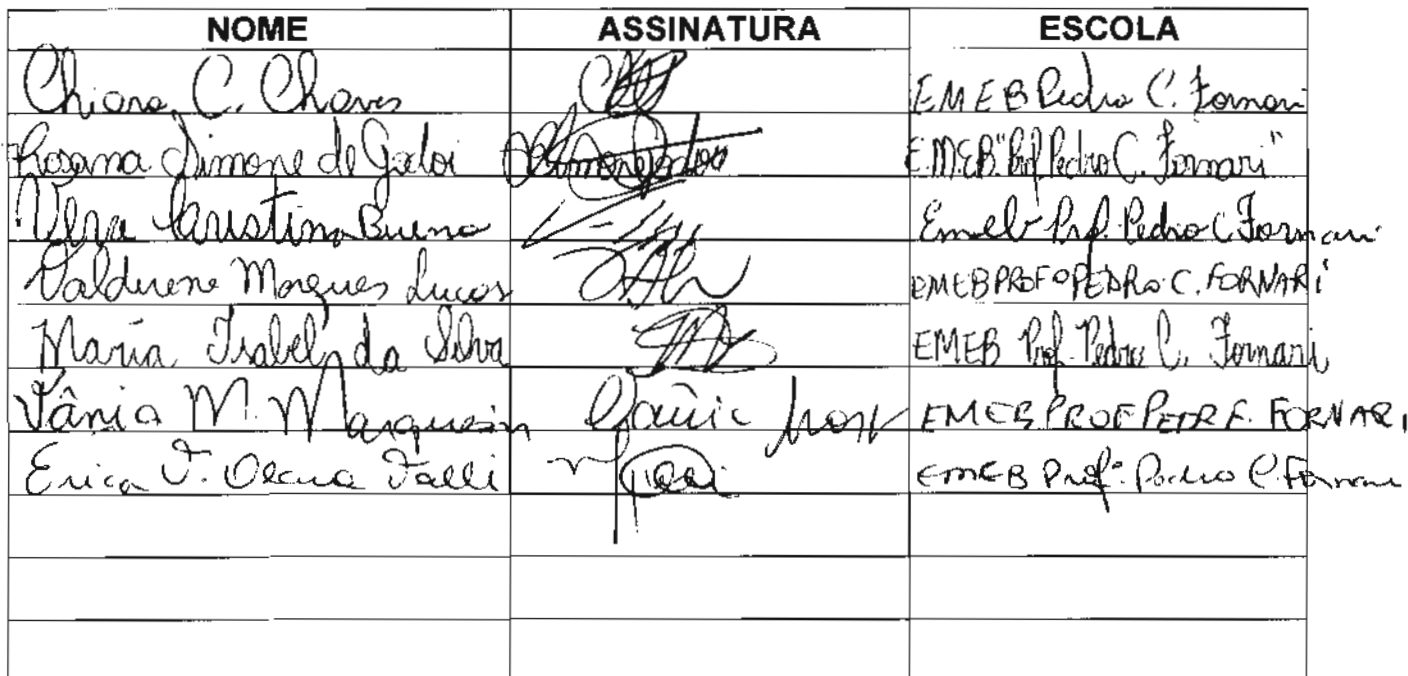 NOME ASSINATURA ESCOLA
Chiara C. Chaves EMEB Pedro C. Fornari
Rosana Simone de Godoi E.M.E.B. "Prof. Pedro C. Fornari"
Vera Faustino Bueno Emeb Prof. Pedro C. Fornari
Valdirene Marques Lucas EMEB PROFº PEDRO C. FORNARI
Maria Isabel da Silva EMEB Prof. Pedro C. Fornari
Tânia M. M. EMEB PROF PEDR F. FORNARI
Erica EMEB Profº. Pedro C. Fornari